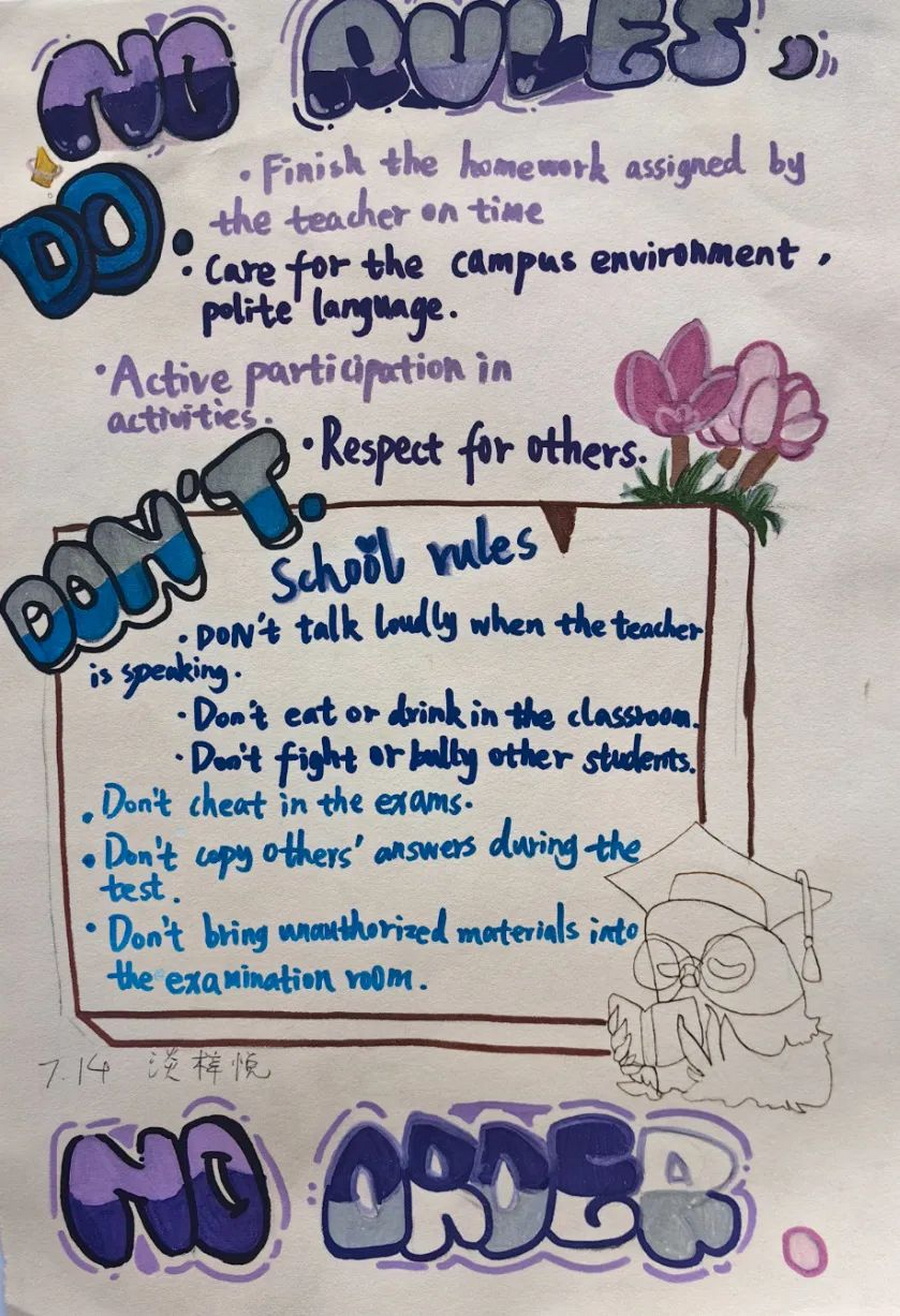 NO RULES,
DO.
· Finish the homework assigned by
the teacher on time
· Care for the campus environment,
polite language.
· Active participation in
activities.
· Respect for others.
DON'T.
School rules
· DON't talk loudly when the teacher
is speaking.
· Don't eat or drink in the classroom.
· Don't fight or bully other students.
· Don't cheat in the exams.
· Don't copy others' answers during the
test.
· Don't bring unauthorized materials into
the examination room.
7.14 淡梓悦
NO ORDER